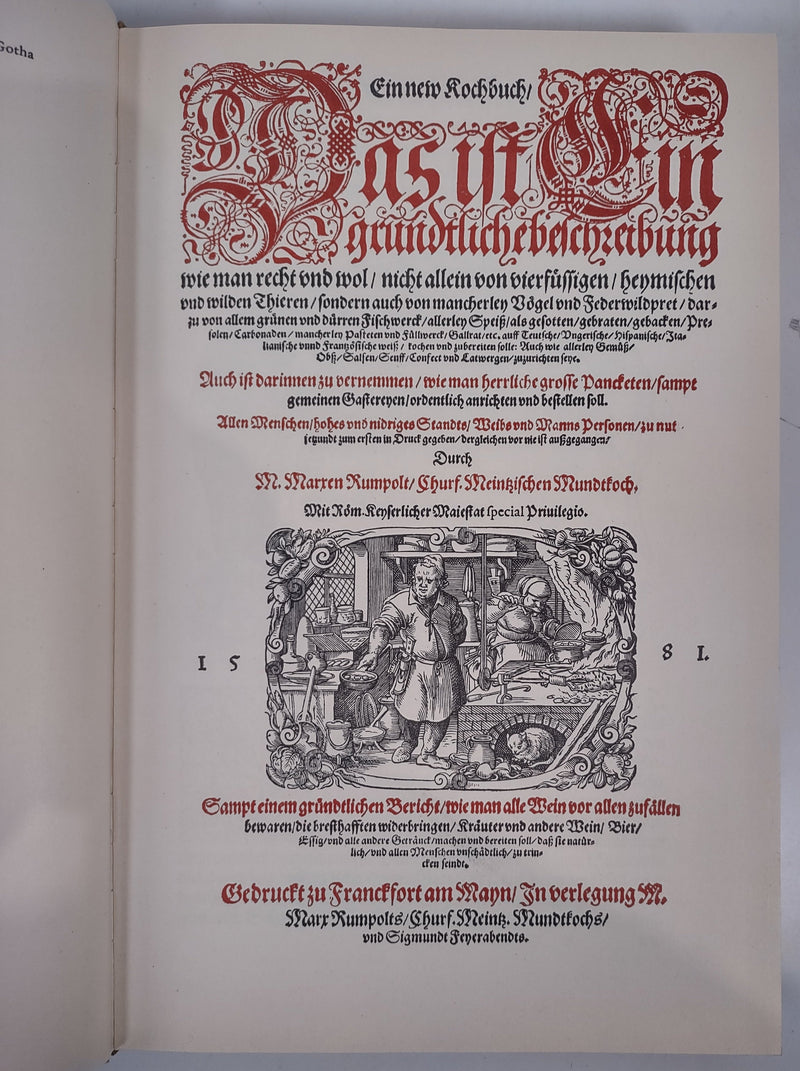 Gotha
Ein new Kochbuch/
Das ist Ein
gründtliche beschreibung
wie man recht vnd wol / nicht allein von vierfüssigen / heymischen
vnd wilden Thieren / sondern auch von mancherley Vögel vnd Federwildpret / dar-
zu von allem grünen vnd dürren Fischwerck / allerley Speiß / als gesotten / gebraten / gebacken / Pre-
solen / Carbonaden / mancherley Pasteten vnd Füllwerck / Gallrat / etc. auff Teutsche / Vngerische / Hispanische / Ita-
lianische vnnd Frantzösische weiß / kochen vnd zubereiten solle: Auch wie allerley Gemüß /
Obß / Salsen / Senff / Confect vnd Latwergen / zuzurichten seye.
Auch ist darinnen zu vernemmen / wie man herrliche grosse Pancketen / sampt
gemeinen Gastereyen / ordentlich anrichten vnd bestellen soll.
Allen Menschen / hohes vnd nidriges Standts / Weibs vnd Manns Personen / zu nutz
jetzundt zum ersten in Druck gegeben / dergleichen vor nie ist außgegangen /
Durch
M. Marxen Rumpolt / Churf. Meintzischen Mundtkoch.
Mit Röm. Keyserlicher Maiestat special Priuilegio.
1 5 8 1.
Sampt einem gründtlichen Bericht / wie man alle Wein vor allen zufällen
bewaren / die bresthafften widerbringen / Kräuter vnd andere Wein / Bier /
Essig / vnd alle andere Getränck / machen vnd bereiten soll / daß sie natür-
lich / vnd allen Menschen vnschädtlich / zu trin-
cken seindt.
Gedruckt zu Franckfort am Mayn / In verlegung M.
Marx Rumpolts / Churf. Meintz. Mundtkochs /
vnd Sigmundt Feyerabendts.